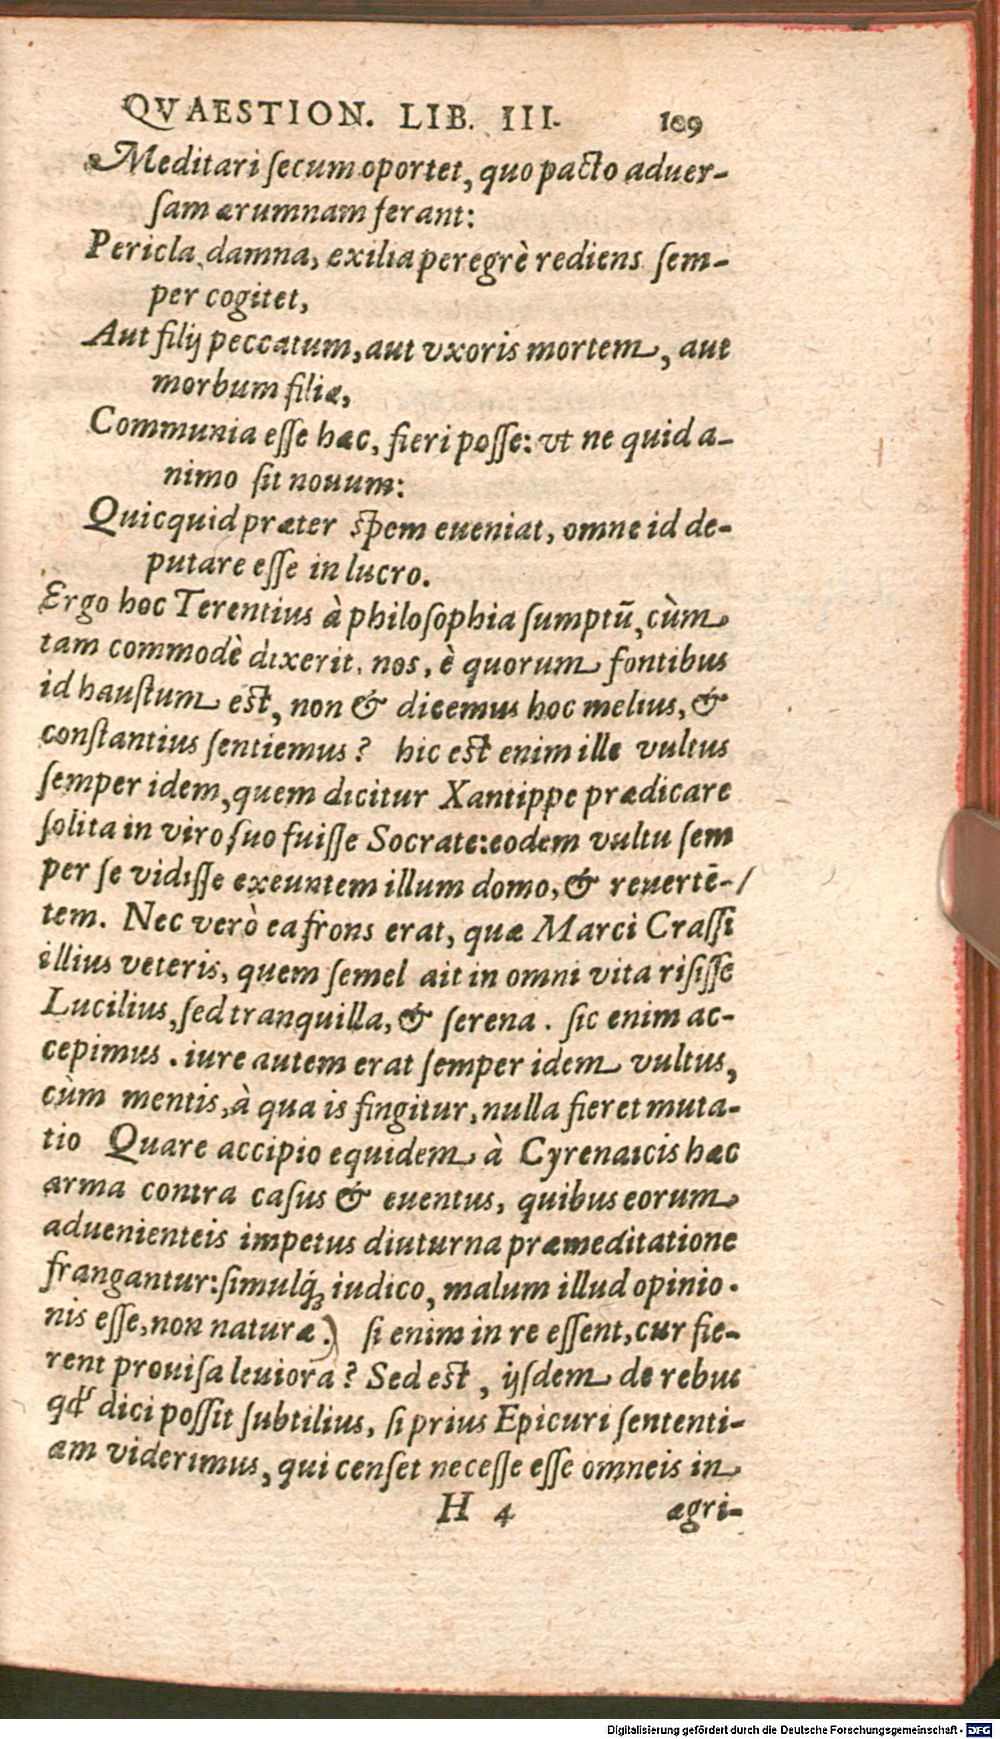 QVAESTION. LIB. III. 109
Meditari ſecum oportet, quo pacto aduer-
ſam ærumnam ferant:
Pericla damna, exilia peregrè rediens ſem-
per cogitet,
Aut filij peccatum, aut vxoris mortem, aut
morbum filiæ,
Communia eſſe hæc, fieri poſſe: vt ne quid a-
nimo ſit nouum:
Quicquid præter ſpem eueniat, omne id de-
putare eſſe in lucro.
Ergo hoc Terentius à philoſophia ſumptū, cùm
tam commodè dixerit, nos, è quorum fontibus
id hauſtum eſt, non & dicemus hoc melius, &
conſtantius ſentiemus? hic eſt enim ille vultus
ſemper idem, quem dicitur Xantippe prædicare
ſolita in viro ſuo fuiſſe Socrate: eodem vultu ſem
per ſe vidiſſe exeuntem illum domo, & reuertē-/
tem. Nec verò ea frons erat, quæ Marci Craſſi
illius veteris, quem ſemel ait in omni vita riſiſſe
Lucilius, ſed tranquilla, & ſerena. ſic enim ac-
cepimus. iure autem erat ſemper idem vultus,
cùm mentis, à qua is fingitur, nulla fieret muta-
tio Quare accipio equidem à Cyrenaicis hæc
arma contra caſus & euentus, quibus eorum
aduenienteis impetus diuturna præmeditatione
frangantur: ſimulq́; iudico, malum illud opinio-
nis eſſe, non naturæ.) ſi enim in re eſſent, cur fie-
rent prouiſa leuiora? Sed eſt, ijſdem de rebus
qđ dici poſſit ſubtilius, ſi prius Epicuri ſententi-
am viderimus, qui cenſet neceſſe eſſe omneis in
H 4 ægri-
Digitalisierung gefördert durch die Deutsche Forschungsgemeinschaft - DFG